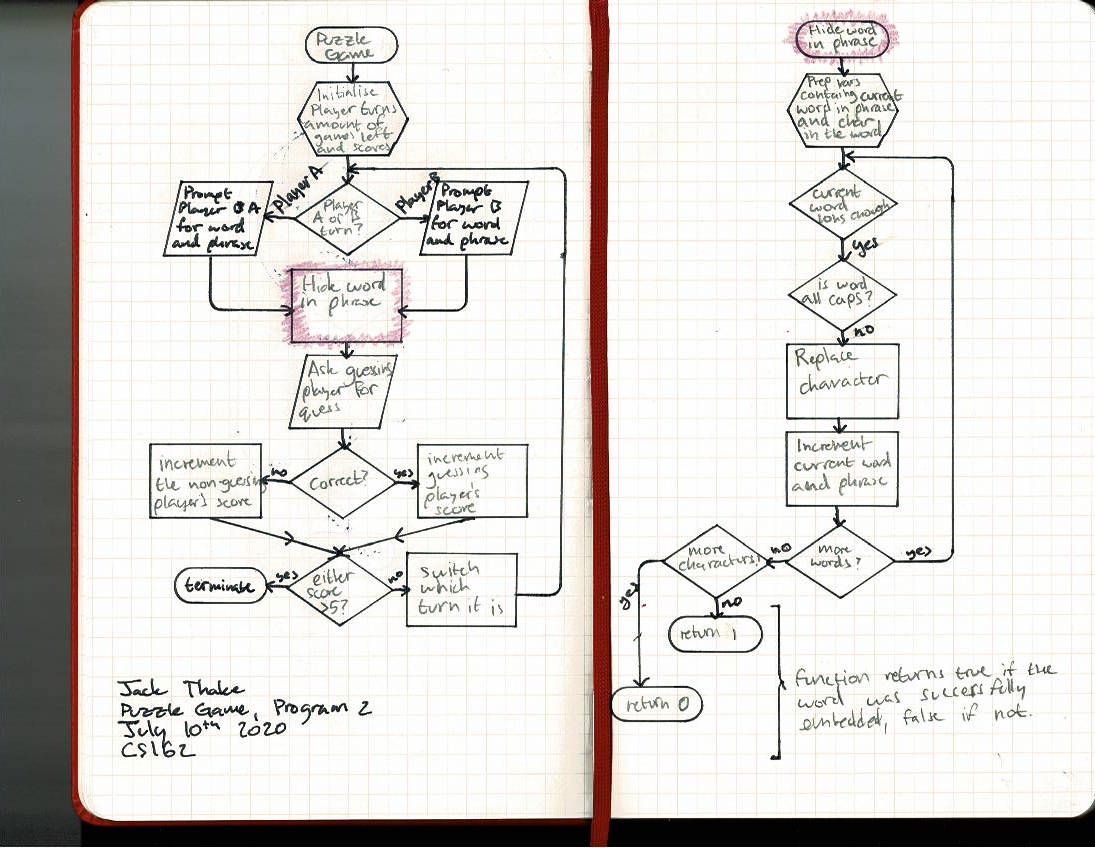 Puzzle
Game
Initialise
Player turns
amount of
games left
and scores
Player A
Player B
Prompt
Player B A
for word
and phrase
Player
A or B
turn?
Prompt
Player B
for word
and phrase
Hide word
in phrase
Ask guessing
player for
guess
increment
the non-guessing
player's score
no
Correct?
yes
increment
guessing
player's
score
terminate
yes
either
score
>5?
no
switch
which
turn it is
Jack Thake
Puzzle Game, Program 2
July 10th 2020
CS162
Hide word
in phrase
Prep vars
containg current
word in phrase
and char
in the word
current
word
long enough
yes
is word
all caps?
no
Replace
character
Increment
current word
and phrase
more
characters?
no
more
words?
yes
yes
no
return 1
return 0
function returns true if the
word was successfully
embedded, false if not.